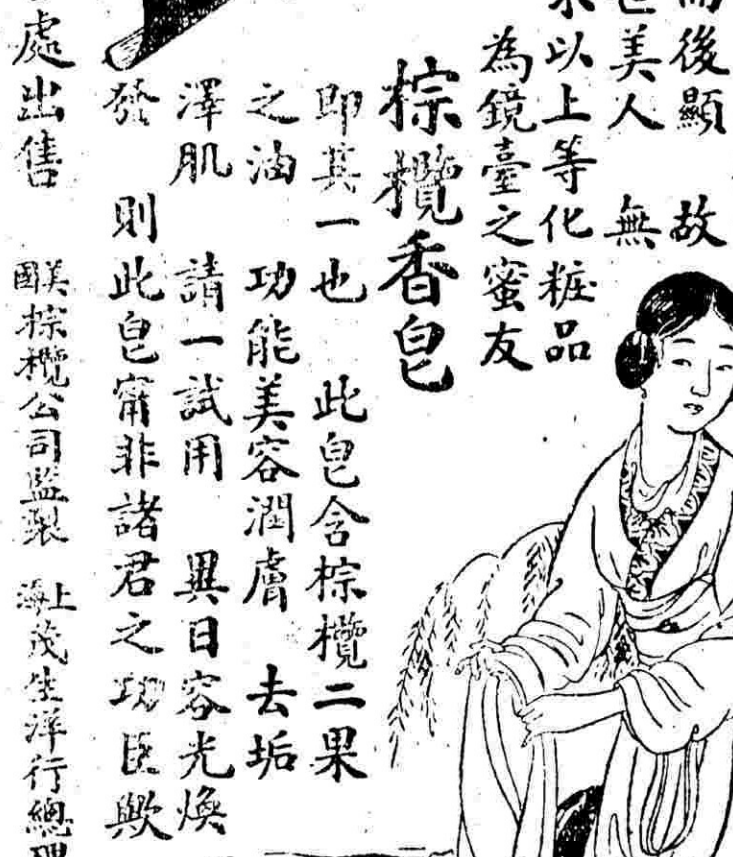 後顯　故
美人　無
以上等化粧品
為鏡臺之蜜友
棕欖香皂
即其一也　此皂含棕欖二果
之油　功能美容潤膚　去垢
澤肌　請一試用　異日容光煥
發　則此皂甯非諸君之功臣歟
處出售　美國棕欖公司監製　上海茂生洋行總